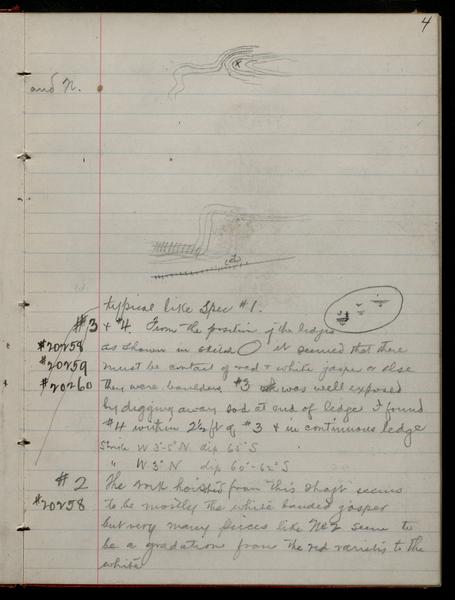 4
and N.
x
typical like Spec #1.
#3 & #4. From the position of the ledges
#20258 as shown in it seemed that there
#20259 must be contact of red & white jasper or else
#20260 they were boulders. #3 was well exposed
by digging away sod at end of ledge I found
#4 within 2½ ft of #3 & in continuous ledge
Strike W 3°-5° N. dip 65° S
" W 3° N dip 60°-62° S
#2 The rock hoisted from this shaft seems
#20258 to be mostly the white banded jasper
but very many pieces like No 2 seem to
be a gradation from the red varieties to the
white